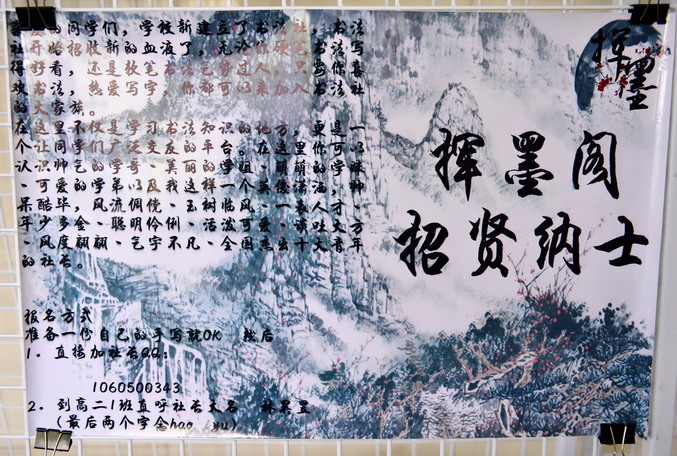 爱的同学们，学校新建立了书法社，书法
社开始招收新的血液了，无论你硬笔书法写
得好看，还是软笔书法气势过人，只要你喜
欢书法，热爱写字，你都可以来加入书法社
的大家族。
在这里不仅是学习书法知识的地方，更是一
个让同学们广泛交友的平台。在这里你可以
认识帅气的学哥、美丽的学姐、萌萌的学妹
、可爱的学弟以及我这样一个英俊潇洒，帅
呆酷毕，风流倜傥、玉树临风、一表人才，
年少多金、聪明伶俐、活泼可爱、谈吐大方
、风度翩翩、气宇不凡、全国杰出十大青年
的社长。
报名方式
准备一份自己的手写就OK 然后
1. 直接加社长QQ:
1060500343
2. 到高二1班直呼社长大名 林昊昱
(最后两个字念hao yu)
挥墨
挥墨阁
招贤纳士